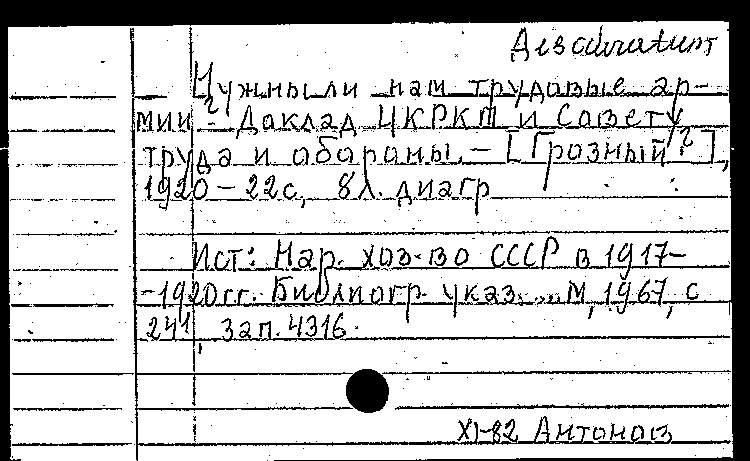 Desideratum
Нужны ли нам трудовые ар-
мии? - Доклад ЦКРКП и Совету
труда и обороны. - [Грозный?],
1920 - 22с, 8л. диагр
Ист: Нар. хоз-во СССР в 1917-
-1920гг. Библиогр. указ.... М, 1967, с
241, зап. 4316.
XI-82 Антонов